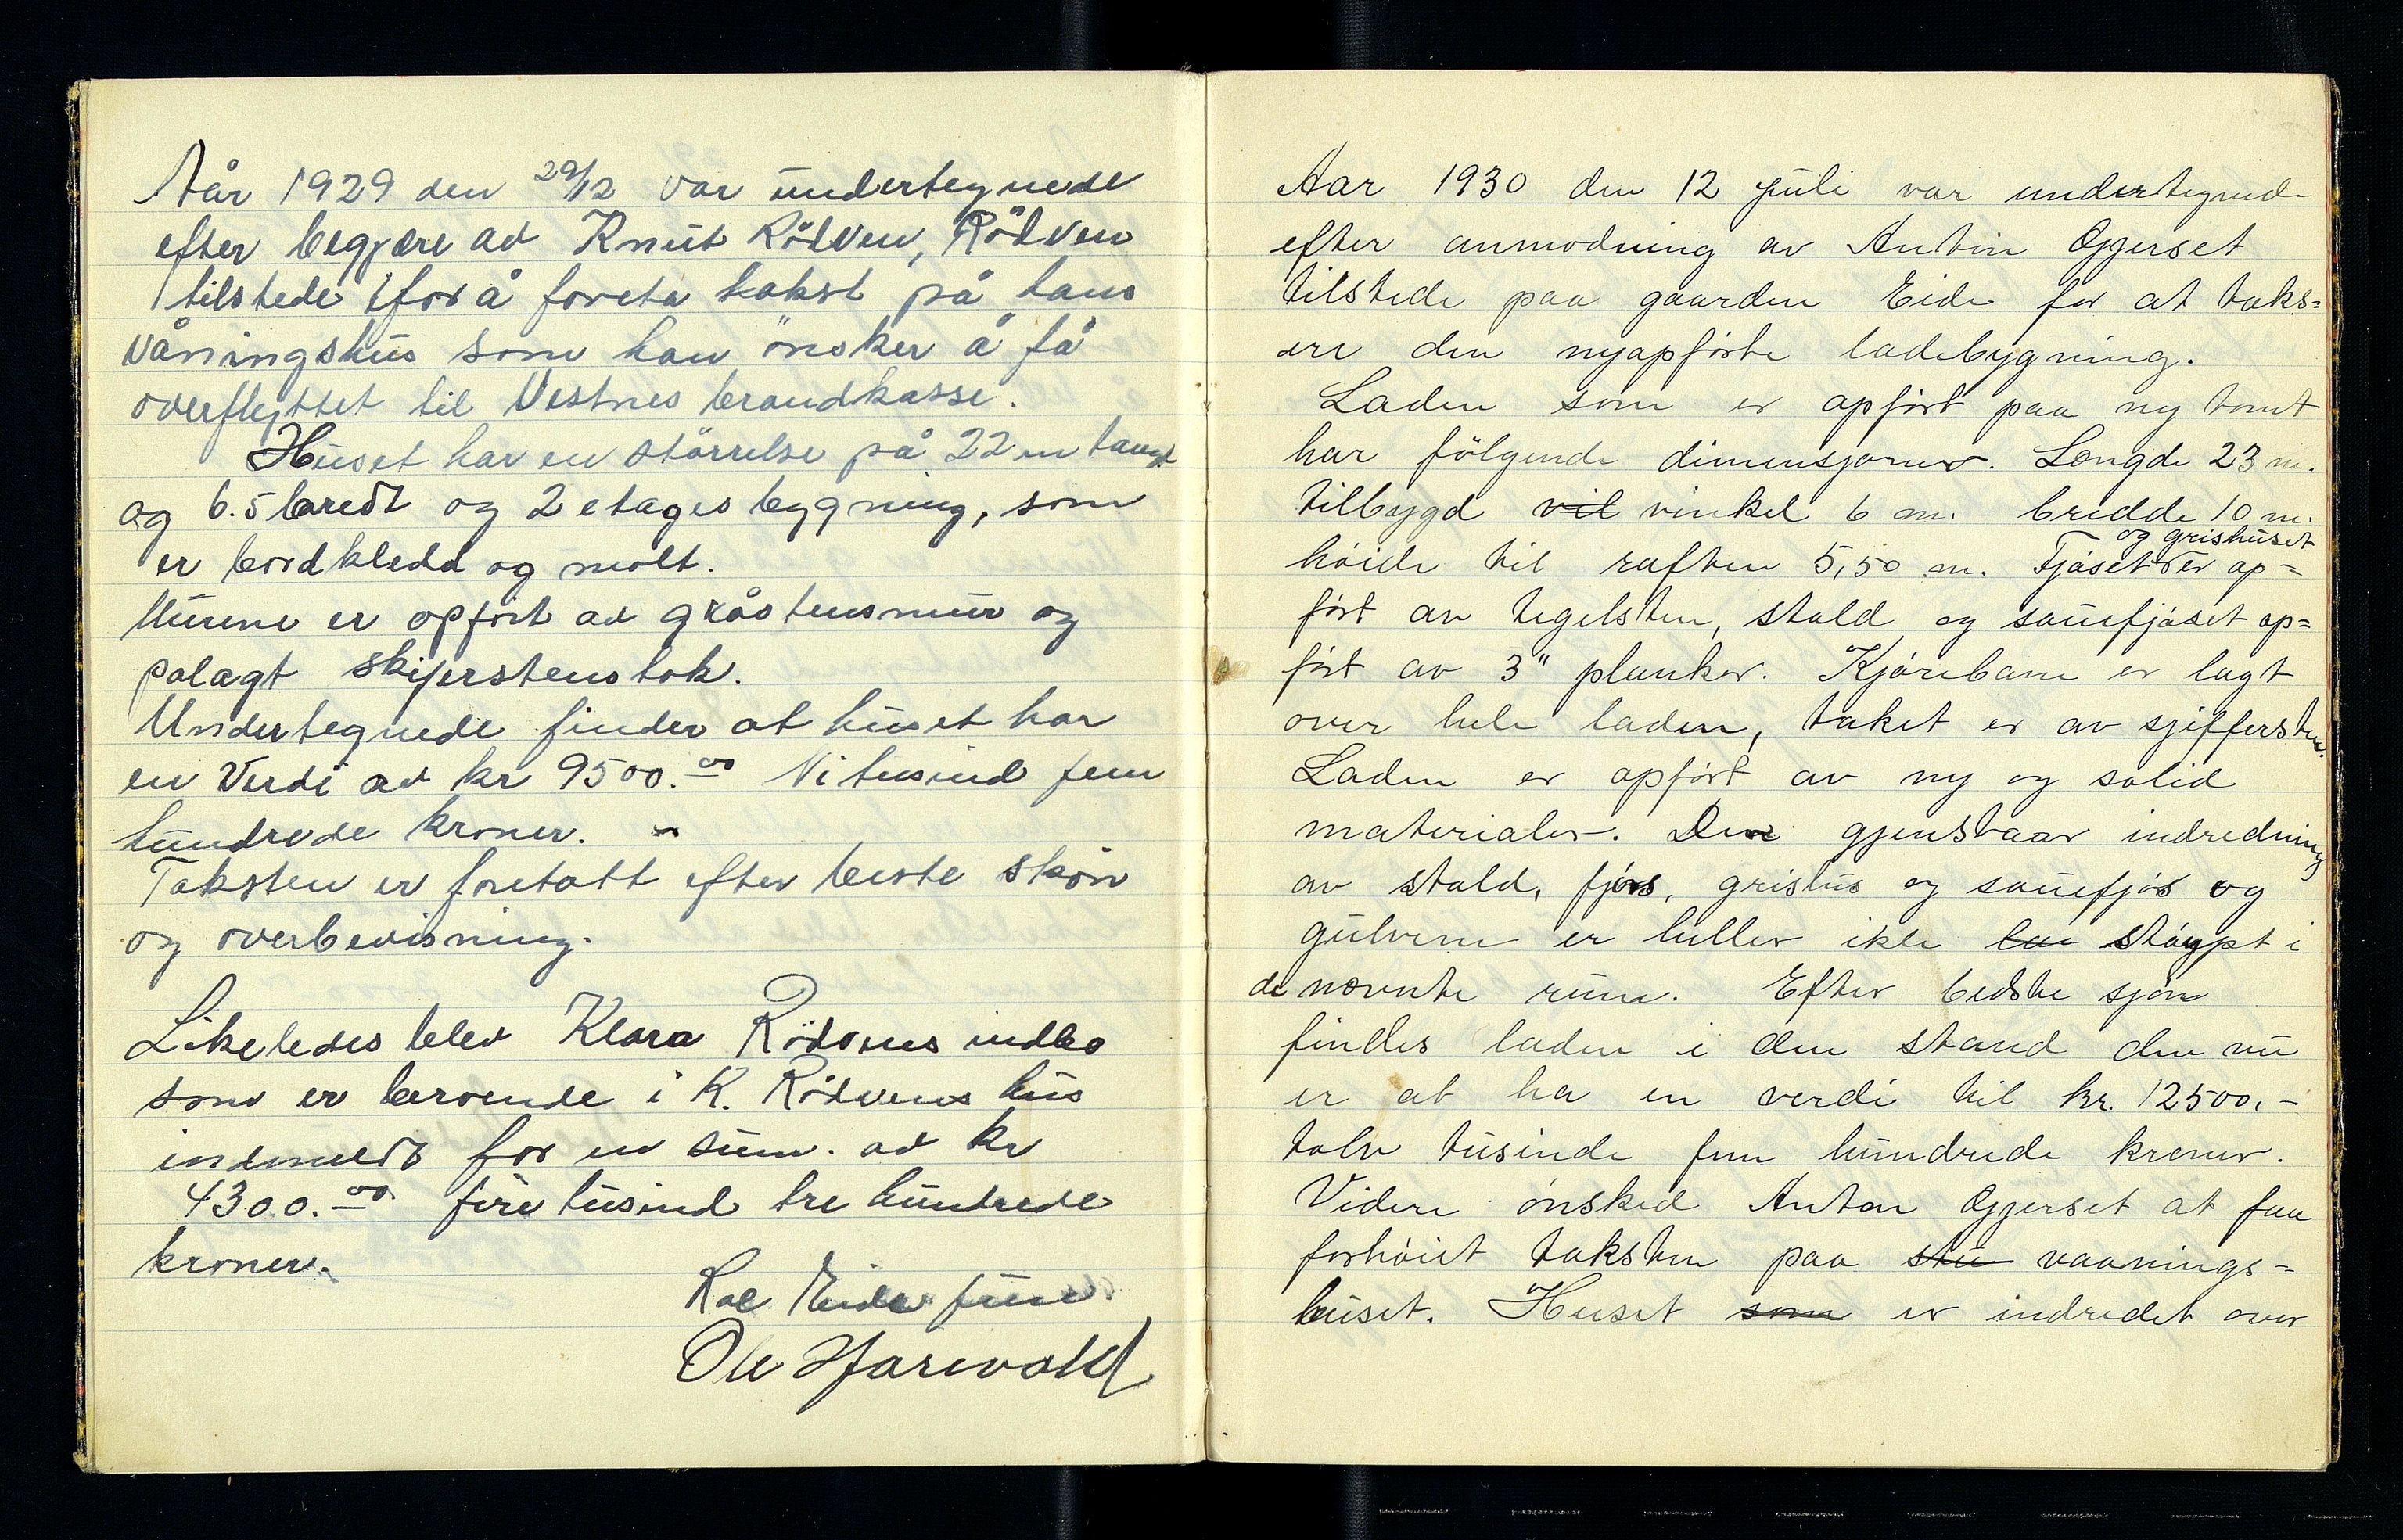 Aår 1929 den 29/12 var undertegnede
efter begjære av Knut Rödven, Rödven
tilstede for å foreta takst på hans
våningshus som han önsker å få
overflyttet til Vestnes brandkasse.
Huset har en störrelse på 22 m langt
og 6.5 bredt og 2 etages bygning, som
er bordkledd og malt.
Murene er opfört av gråstensmur og
palagt skiferstenstak.
Undertegnede finder at huset har
en Verdi av kr 9500.00 Ni tusind fem
hundrede kroner.
Taksten er foretatt efter beste skön
og overbevisning.
Likeledes blev Klara Rödvens indbo
som er beroende i K. Rödvens hus
inkluedt for en sum. av kr
4300.00 fire tusind tre hundrede
kroner.
Eide
Ole Harevold
Aar 1930 den 12 juli var undertegned
efter anmodning av Anton Gjerset
tilstede paa gaarden Eide for at taks=
ere den nyapförte ladebygning.
Laden som er apfört paa ny tomt
har fölgende dimensjoner. Længde 23 m.
tilbygd vil vinkel 6 m. bredde 10 m.
og grishuset
höide til raften 5,50 m. Fjöset er ap=
fört av tegelsten, stald og sauefjöset ap=
fört av 3" planker. Kjörebane er lagt
over hele laden, taket er av sjiffersten.
Laden er apfört av ny og solid
materialer. Der gjenstaar indredning
av stald, fjös, grishus og sauefjös og
gulvene er heller ikke stöypt i
de nævnte rum. Efter bedste sjön
findes laden i den stand den nu
er at ha en verdi til kr. 12500,-
tolv tusinde fem hundrede kroner.
Videre önsked Anton Gjerset at faa
forhöiet taksten paa stu vaanings=
huset. Huset som er indredet over